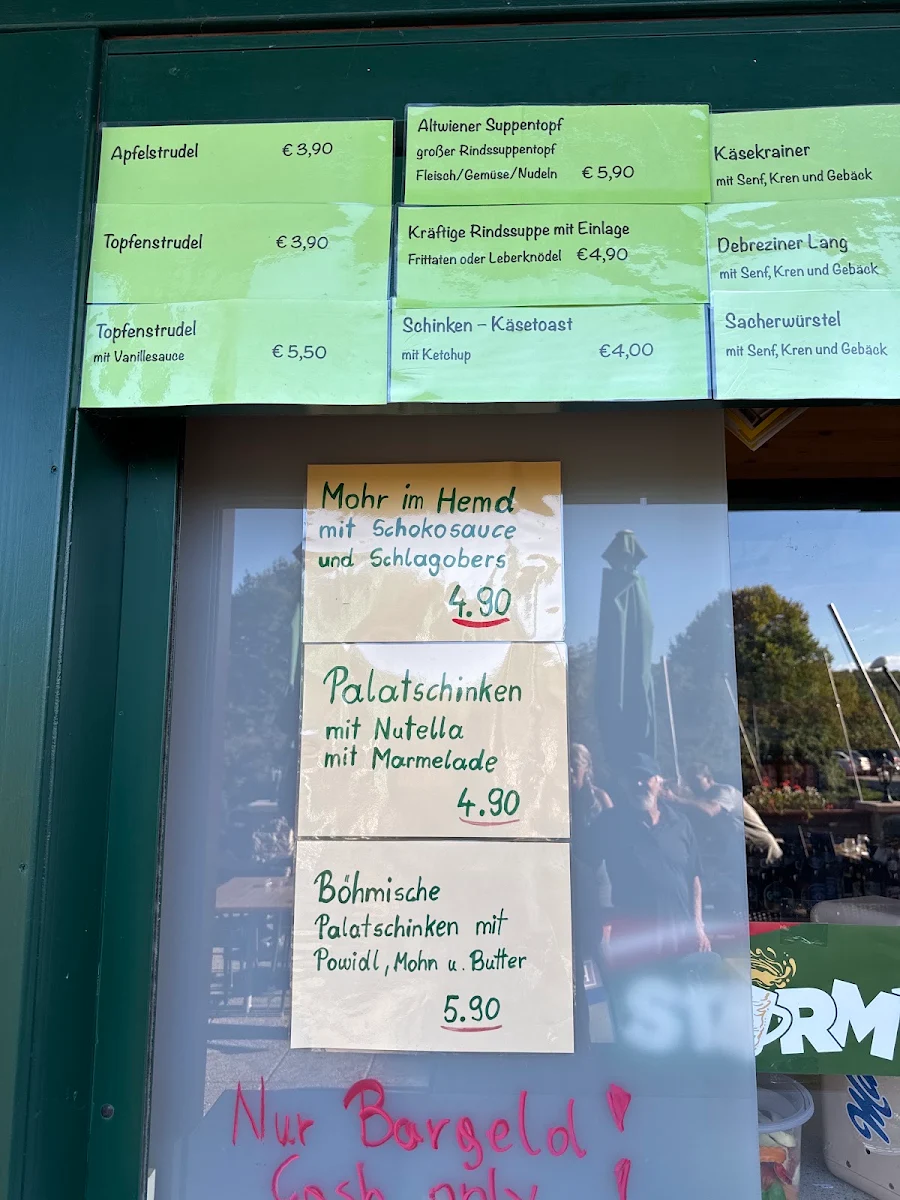 Apfelstrudel € 3,90
Topfenstrudel € 3,90
Topfenstrudel
mit Vanillesauce € 5,50
Altwiener Suppentopf
großer Rindssuppentopf
Fleisch/Gemüse/Nudeln € 5,90
Kräftige Rindssuppe mit Einlage
Frittaten oder Leberknödel €4,90
Schinken – Käsetoast
mit Ketchup €4,00
Käsekrainer
mit Senf, Kren und Gebäck
Debreziner Lang
mit Senf, Kren und Gebäck
Sacherwürstel
mit Senf, Kren und Gebäck
Mohr im Hemd
mit Schokosauce
und Schlagobers
4.90
Palatschinken
mit Nutella
mit Marmelade
4.90
Böhmische
Palatschinken mit
Powidl, Mohn u. Butter
5.90
STORM
Nur Bargeld!
Cash only!